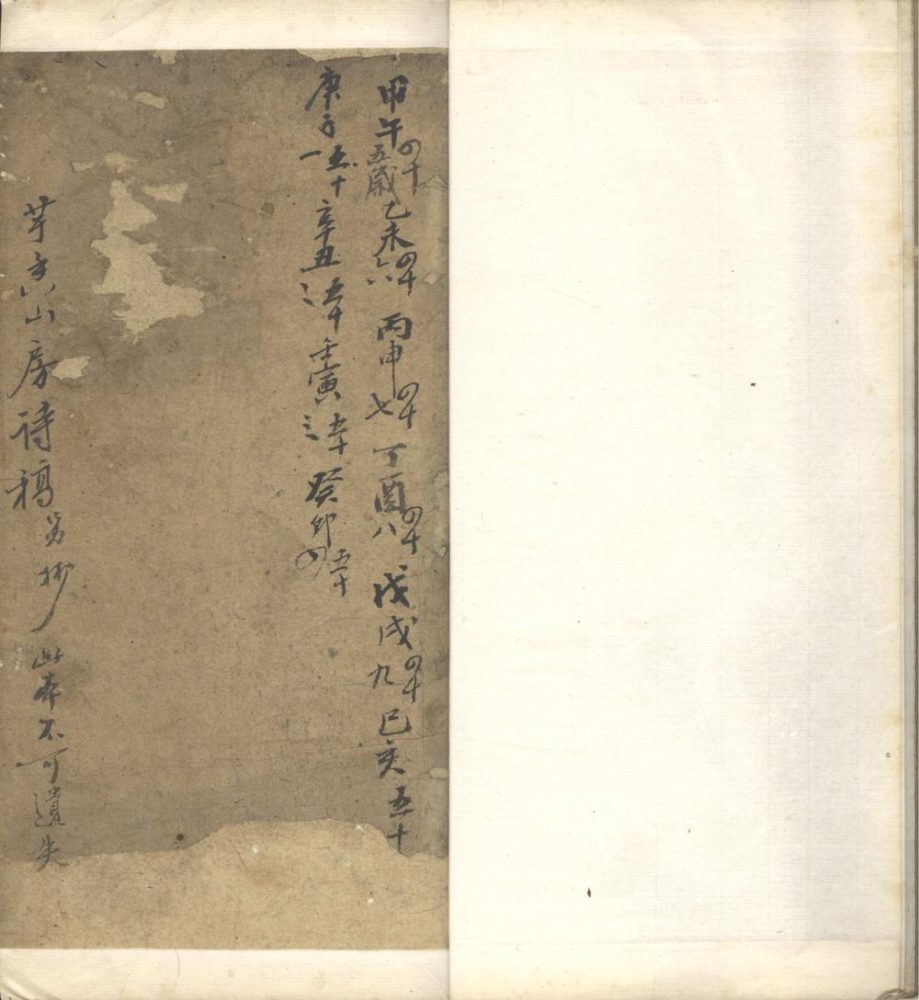 甲午四十五歲乙未四十六丙申四十七丁酉四十八戊戌四十九己亥五十
庚子五十一辛丑五十二壬寅五十三癸卯五十四
芋香山房詩稿另抄 此本不可遺失